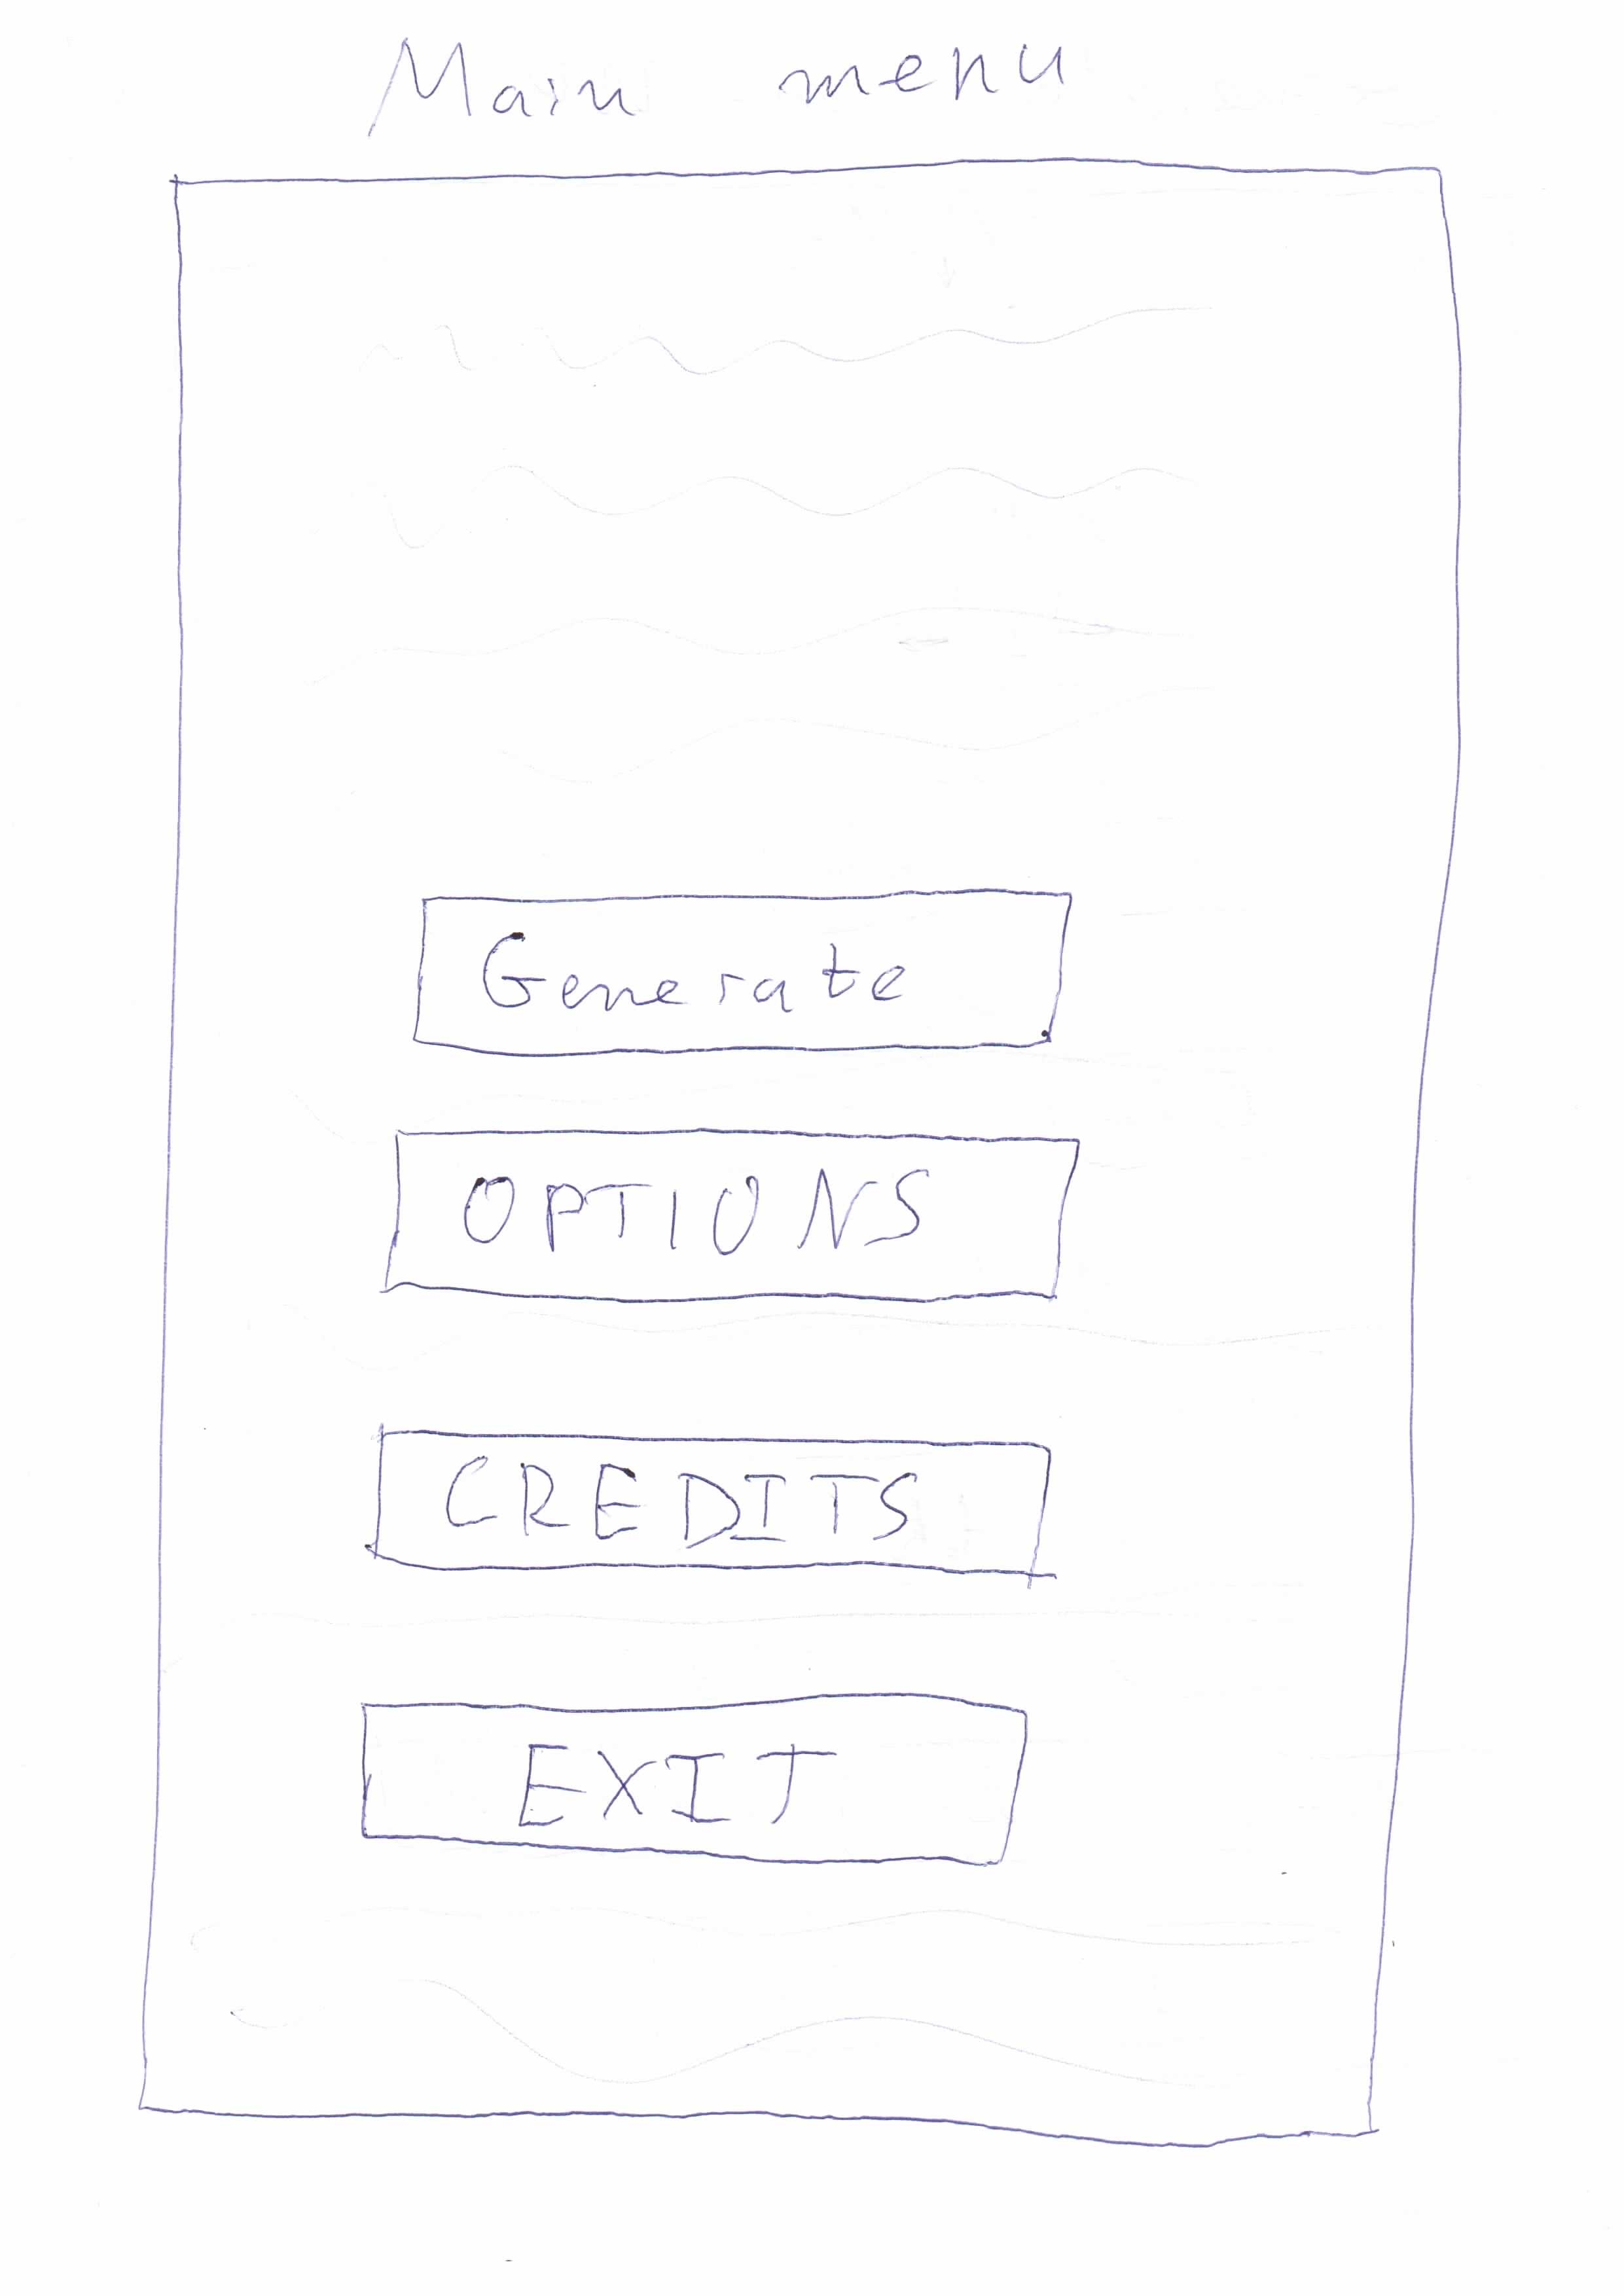 Main menu
Generate
OPTIONS
CREDITS
EXIT